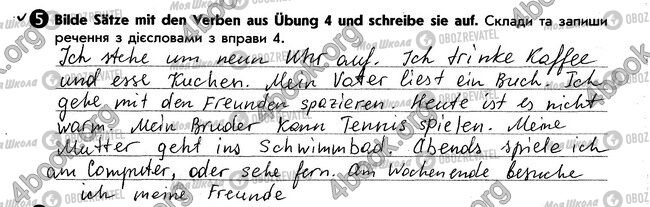 5 Bilde Sätze mit den Verben aus Übung 4 und schreibe sie auf. Склади та запиши
речення з дієсловами з вправи 4.
Ich stehe um neun Uhr auf. Ich trinke Kaffee
und esse Kuchen. Mein Vater liest ein Buch. Ich
gehe mit den Freunden spazieren. Heute ist es nicht
warm. Mein Bruder kann Tennis spielen. Meine
Mutter geht ins Schwimmbad. Abends spiele ich
am Computer, oder sehe fern. Am Wochenende besuche
ich meine Freunde